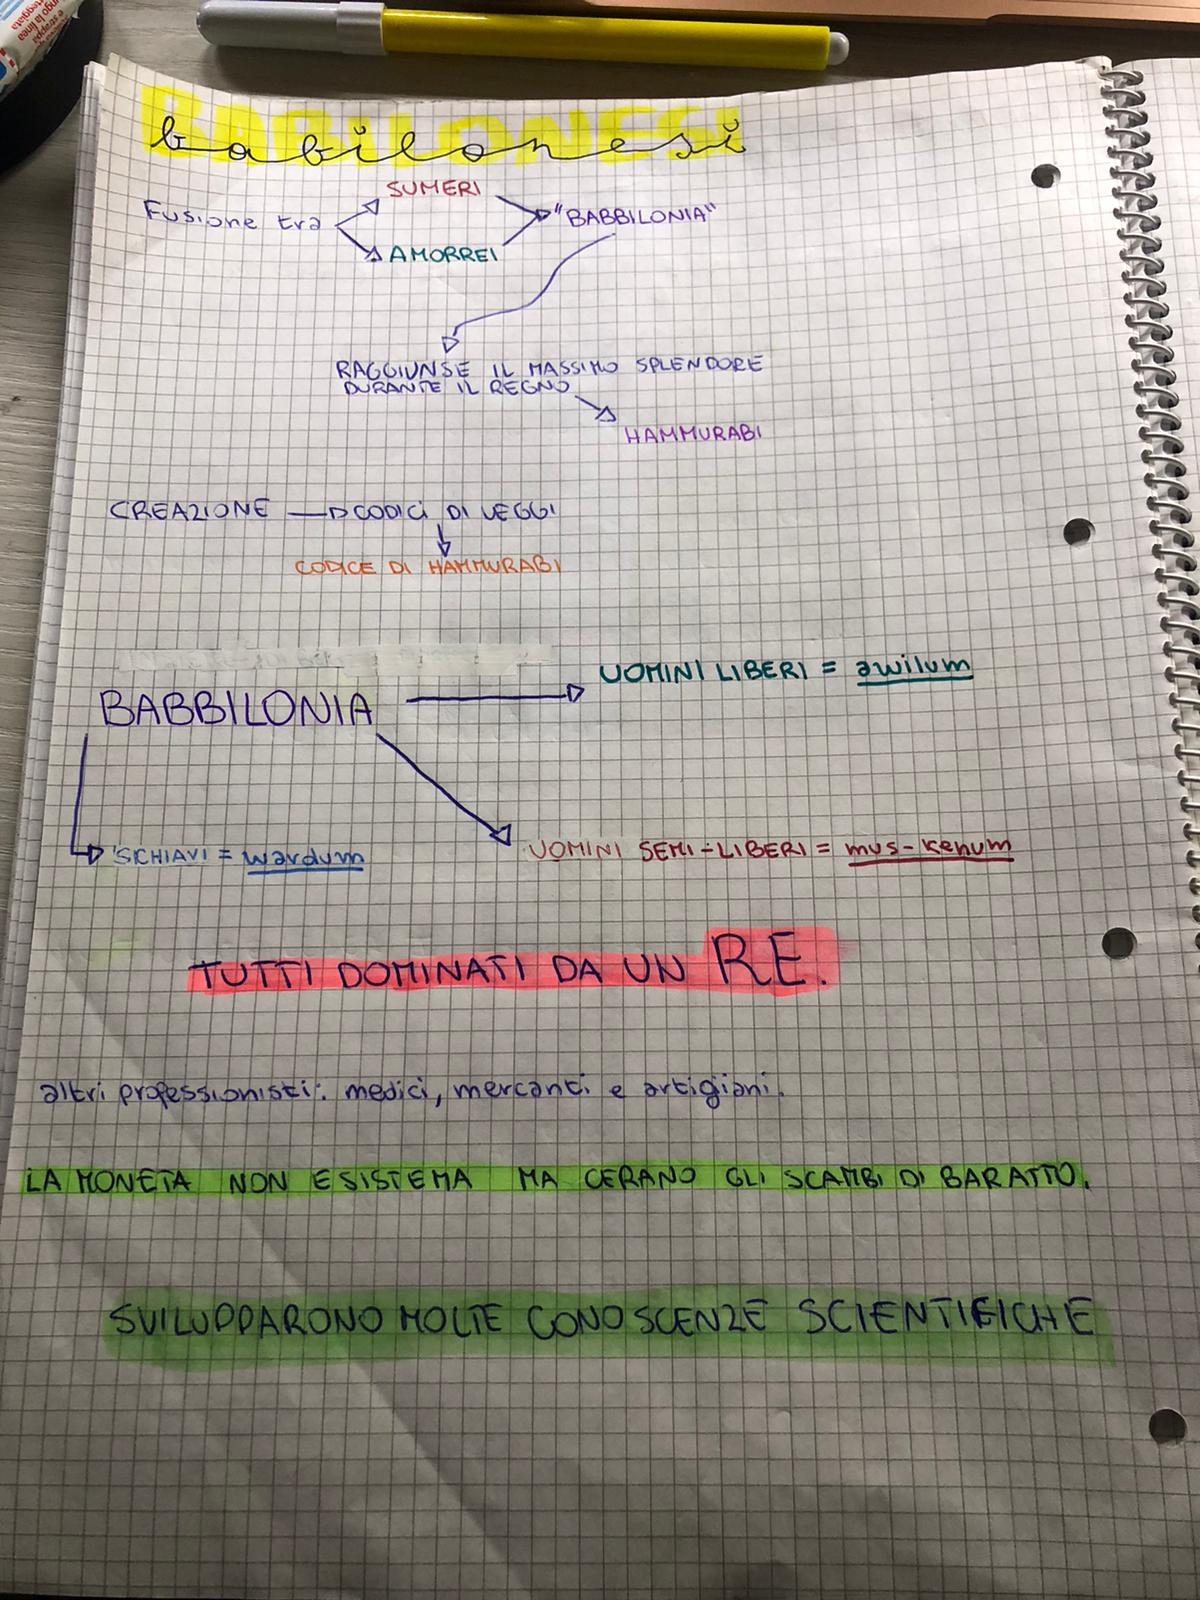 BABILONESI
babilonesi
Fusione tra
SUMERI
AMORREI
"BABBILONIA"
RAGGIUNSE IL MASSIMO SPLENDORE
DURANTE IL REGNO
HAMMURABI
CREAZIONE CODICI DI LEGGI
CODICE DI HAMMURABI
BABBILONIA
UOMINI LIBERI = awilum
SCHIAVI = wardum
UOMINI SEMI-LIBERI = mus-kenum
TUTTI DOMINATI DA UN RE.
altri professionisti: medici, mercanti e artigiani.
LA MONETA NON ESISTEMA MA CERANO GLI SCAMBI DI BARATTO.
SVILUPPARONO MOLTE CONOSCENZE SCIENTIFICHE